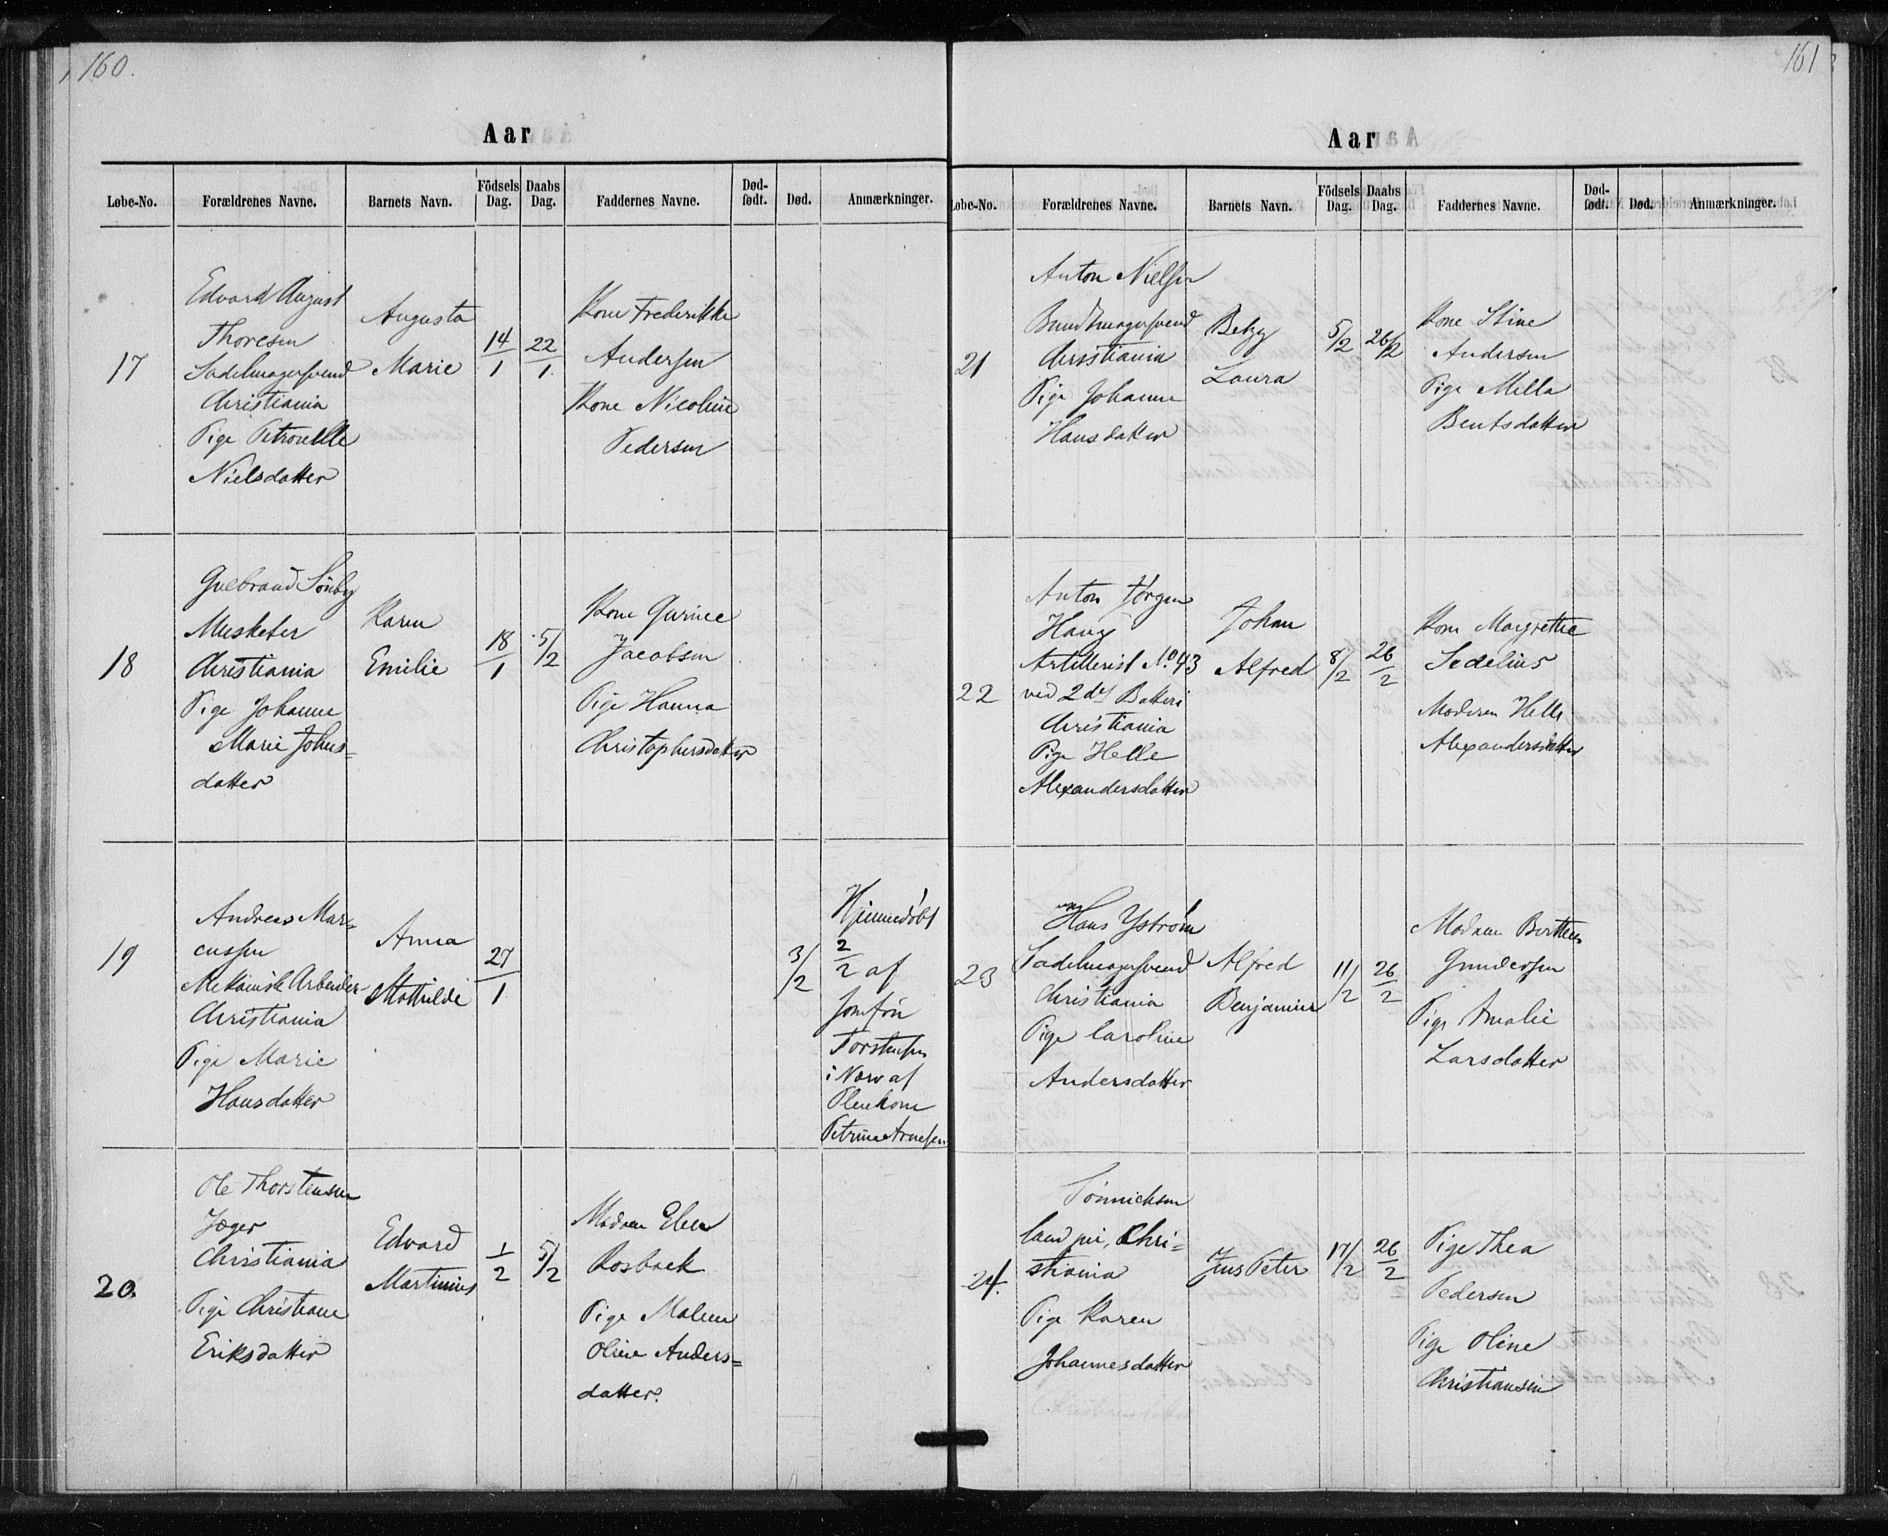 160.
Aar
Løbe-No.
Forældrenes Navne.
Barnets Navn.
Födsels Dag.
Daabs Dag.
Faddernes Navne.
Død-født.
Død.
Anmærkninger.
17
Edvard August
Thoresen
Sadelmagersvend
Christiania
Pige Petronelle
Nielsdatter
Augusta
Marie
14/1
22/1
Kone Frederikke
Andersen
Kone Nicoline
Pedersen
18
Gulbrand
Musketer
Christiania
Pige Johanne
Marie Johns=
datter
Karen
Emilie
18/1
5/2
Kone Gurine
Jacobsen
Pige Hanna
Christophersdatter
19
Andreas Mar=
cussen
Mekanisk Arbeider
Christiania
Pige Marie
Hansdatter
Anna
Mathilde
27/1
3/2
Hjemmedøbt
2/2 af
Jomfru
Torstensen
i Nærv af
Petrine Arnesen
20.
Ole Thorstensen
Jæger
Christiania
Pige Christiane
Eriksdatter
Edvard
Martinius
1/2
5/2
Madam Elen
Rosbach
Pige Malene
Oline Anders=
datter.
161
Aar
Løbe-No.
Forældrenes Navne.
Barnets Navn.
Födsels Dag.
Daabs Dag.
Faddernes Navne.
Død-født.
Død.
Anmærkninger.
21
Anton Nielsen
Bundtmagersvend
Christiania
Pige Johanne
Hansdatter
Betzy
Laura
5/2
26/2
Kone Stine
Andersen
Pige Mella
Bentsdatter
22
Anton Jørgen
Haug
Artillerist No 43
ved 2det Batteri
Christiania
Pige Helle
Alexandersdatter
Johan
Alfred
8/2
26/2
Kone Margrethe
Sedelius
Moderen Helle
Alexandersdatter
23
Hans Ystrøm
Sadelmagersvend
Christiania
Pige Caroline
Andersdatter
Alfred
Benjamin
11/2
26/2
Madam Berthea
Gundersen
Pige Amalie
Larsdatter
24.
Tönnichsen
Chri=
stiania
Pige Karen
Johannesdatter
Jens Peter
17/2
26/2
Pige Thea
Pedersen
Pige Oline
Christiansen